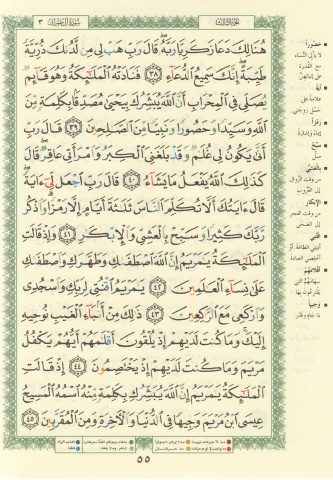 سورة آل عمران ٣
الجزء الثالث
هُنَالِكَ دَعَا زَكَرِيَّا رَبَّهُۥ قَالَ رَبِّ هَبْ لِى مِن لَّدُنكَ ذُرِّيَّةً
طَيِّبَةً إِنَّكَ سَمِيعُ ٱلدُّعَآءِ ٣٨ فَنَادَتْهُ ٱلْمَلَٰٓئِكَةُ وَهُوَ قَآئِمٌ
يُصَلِّى فِى ٱلْمِحْرَابِ أَنَّ ٱللَّهَ يُبَشِّرُكَ بِيَحْيَىٰ مُصَدِّقًۢا بِكَلِمَةٍ مِّنَ
ٱللَّهِ وَسَيِّدًا وَحَصُورًا وَنَبِيًّا مِّنَ ٱلصَّٰلِحِينَ ٣٩ قَالَ رَبِّ
أَنَّىٰ يَكُونُ لِى غُلَٰمٌ وَقَدْ بَلَغَنِىَ ٱلْكِبَرُ وَٱمْرَأَتِى عَاقِرٌ قَالَ
كَذَٰلِكَ ٱللَّهُ يَفْعَلُ مَا يَشَآءُ ٤٠ قَالَ رَبِّ ٱجْعَل لِّىٓ ءَايَةً
قَالَ ءَايَتُكَ أَلَّا تُكَلِّمَ ٱلنَّاسَ ثَلَٰثَةَ أَيَّامٍ إِلَّا رَمْزًا وَٱذْكُر
رَّبَّكَ كَثِيرًا وَسَبِّحْ بِٱلْعَشِىِّ وَٱلْإِبْكَٰرِ ٤١ وَإِذْ قَالَتِ
ٱلْمَلَٰٓئِكَةُ يَٰمَرْيَمُ إِنَّ ٱللَّهَ ٱصْطَفَىٰكِ وَطَهَّرَكِ وَٱصْطَفَىٰكِ
عَلَىٰ نِسَآءِ ٱلْعَٰلَمِينَ ٤٢ يَٰمَرْيَمُ ٱقْنُتِى لِرَبِّكِ وَٱسْجُدِى
وَٱرْكَعِى مَعَ ٱلرَّٰكِعِينَ ٤٣ ذَٰلِكَ مِنْ أَنۢبَآءِ ٱلْغَيْبِ نُوحِيهِ
إِلَيْكَ وَمَا كُنتَ لَدَيْهِمْ إِذْ يُلْقُونَ أَقْلَٰمَهُمْ أَيُّهُمْ يَكْفُلُ
مَرْيَمَ وَمَا كُنتَ لَدَيْهِمْ إِذْ يَخْتَصِمُونَ ٤٤ إِذْ قَالَتِ
ٱلْمَلَٰٓئِكَةُ يَٰمَرْيَمُ إِنَّ ٱللَّهَ يُبَشِّرُكِ بِكَلِمَةٍ مِّنْهُ ٱسْمُهُ ٱلْمَسِيحُ
عِيسَى ٱبْنُ مَرْيَمَ وَجِيهًا فِى ٱلدُّنْيَا وَٱلْءَاخِرَةِ وَمِنَ ٱلْمُقَرَّبِينَ ٤٥
حَصُورًا
لا يأتي النساء
مع القدرة
على إتيانهن
آية
علامة على
حمل زوجتي
رمزًا
إيماءً وإشارة
سبّح
صلّ
بالعشي
من وقت الزوال
إلى الغروب
الإبكار
من وقت الفجر
إلى الضحى
اقنتي
أقلامهم
وجيهًا
ذا جاه وقدر
٥٥